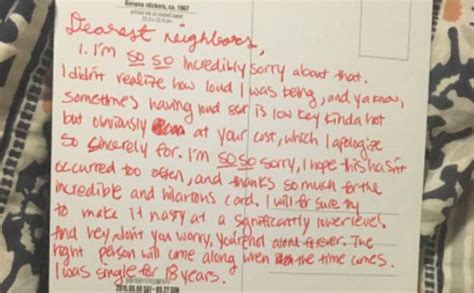 Banana stickers, ca. 1967
Dearest neighbors,
1. I'm so so incredibly sorry about that.
I didn't realize how loud I was being, and ya know,
sometimes having loud sex is low key kinda hot
but obviously at your cost, which I apologize
so sincerely for. I'm so so sorry, I hope this hasn't
occurred too often, and thanks so much for the
incredible and hilarious card. I will for sure try
to make it nasty at a significantly lower level.
And hey don't you worry, you'll end alone forever. The
right person will come along when the time comes.
I was single for 18 years.